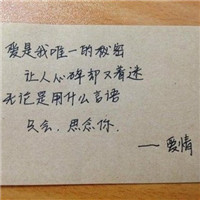 爱是我唯一的秘密
让人心碎却又着迷
无论是用什么言语
只会.思念你.
——爱情